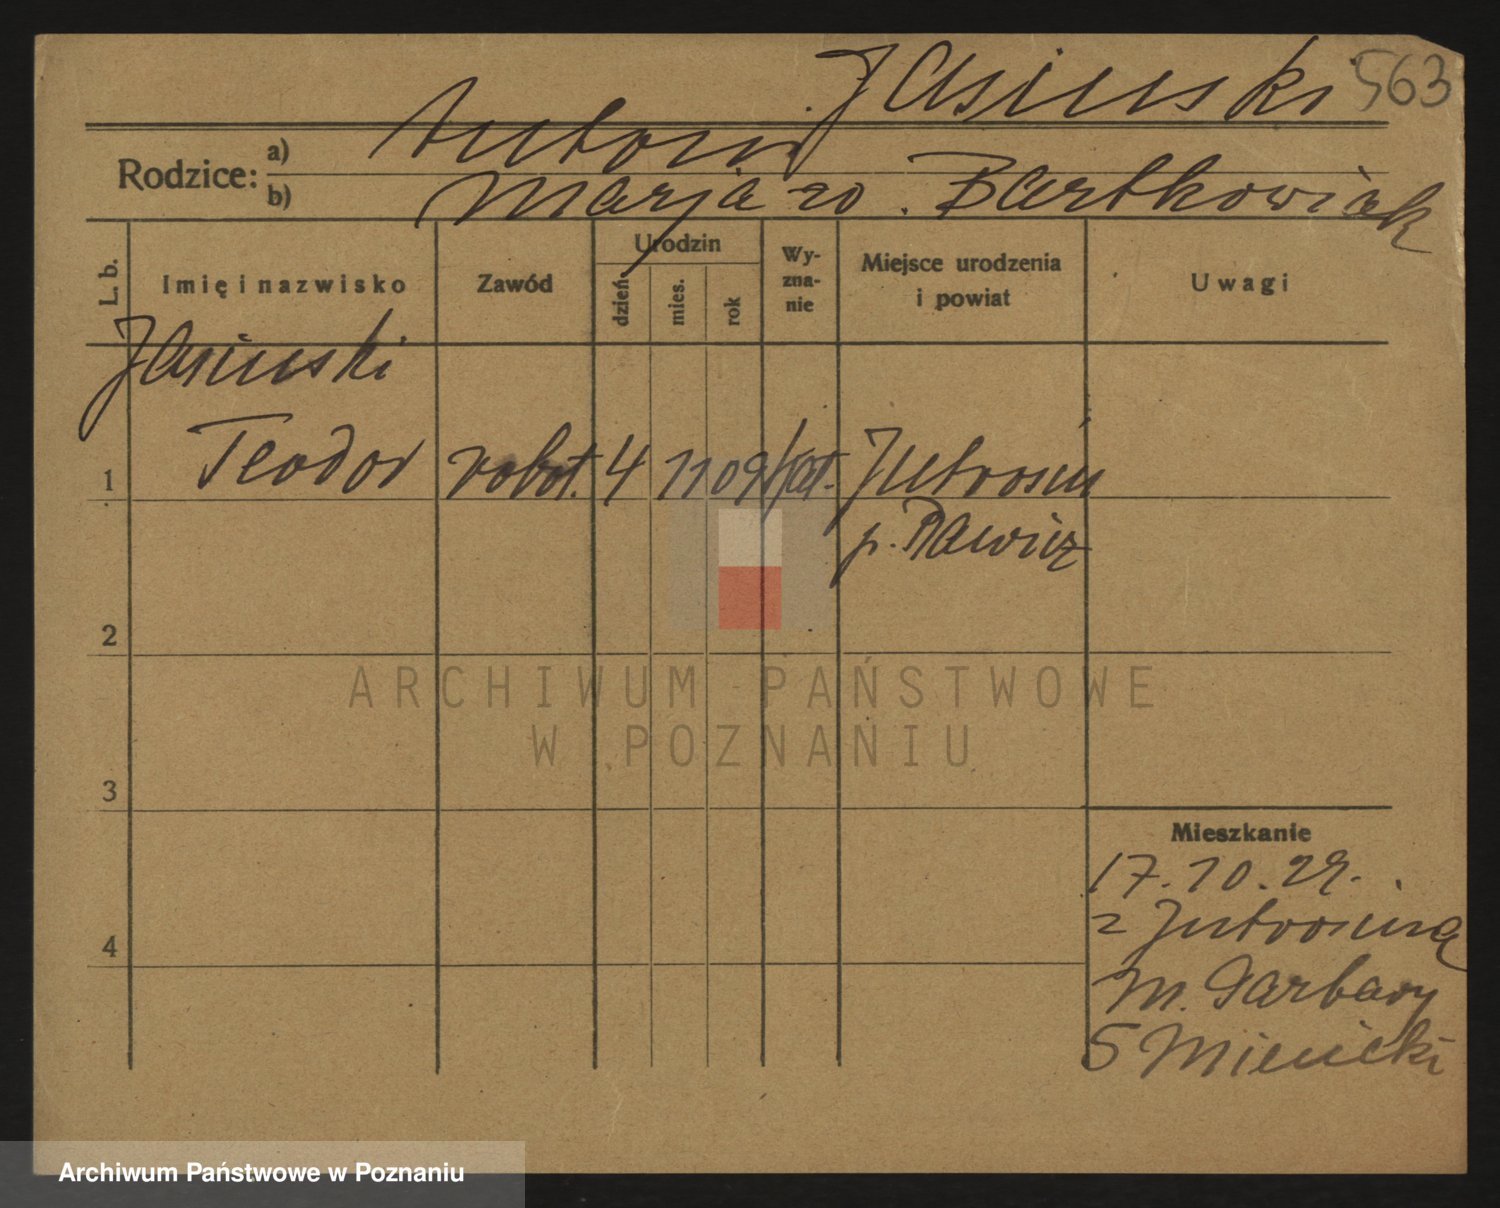 Jasiński 563
Antoni
Rodzice: a)
b) Marja ro. Bartkowiak
L. b.
Imię i nazwisko
Zawód
Urodzin
dzień
mies.
rok
Wy-
zna-
nie
Miejsce urodzenia
i powiat
Uwagi
Jasiński
1 Teodor robot. 4 11 09 kat. Jutrosin
p. Rawicz
2
3
4
Mieszkanie
17.10.29.
z Jutrosina
M. Garbary
5 Mienicki
ARCHIWUM PAŃSTWOWE
W POZNANIU
Archiwum Państwowe w Poznaniu